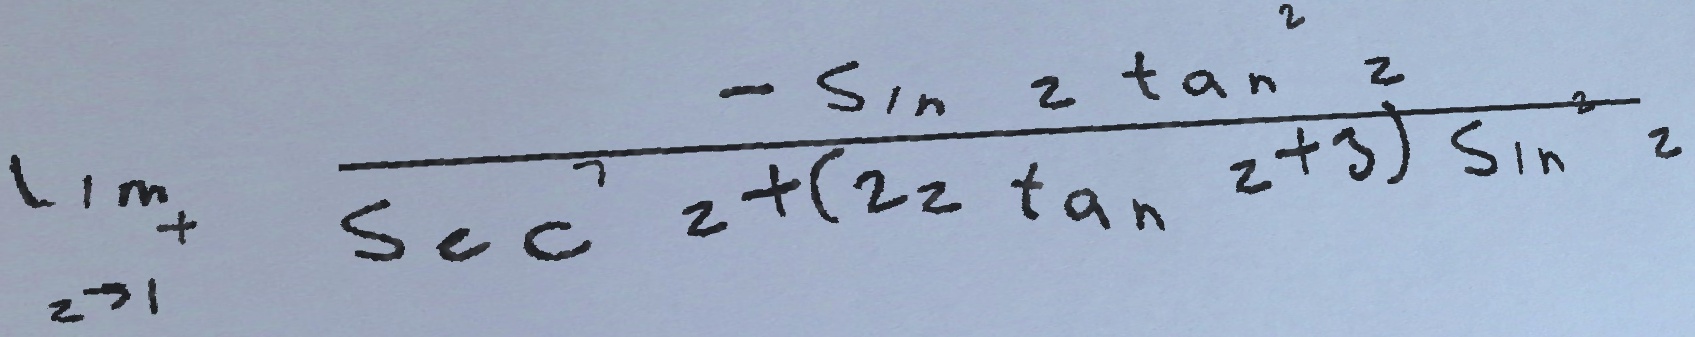 lim z→1+ (-sin z tan² z) / (sec⁷ z + (2z tan z + 3) sin² z)